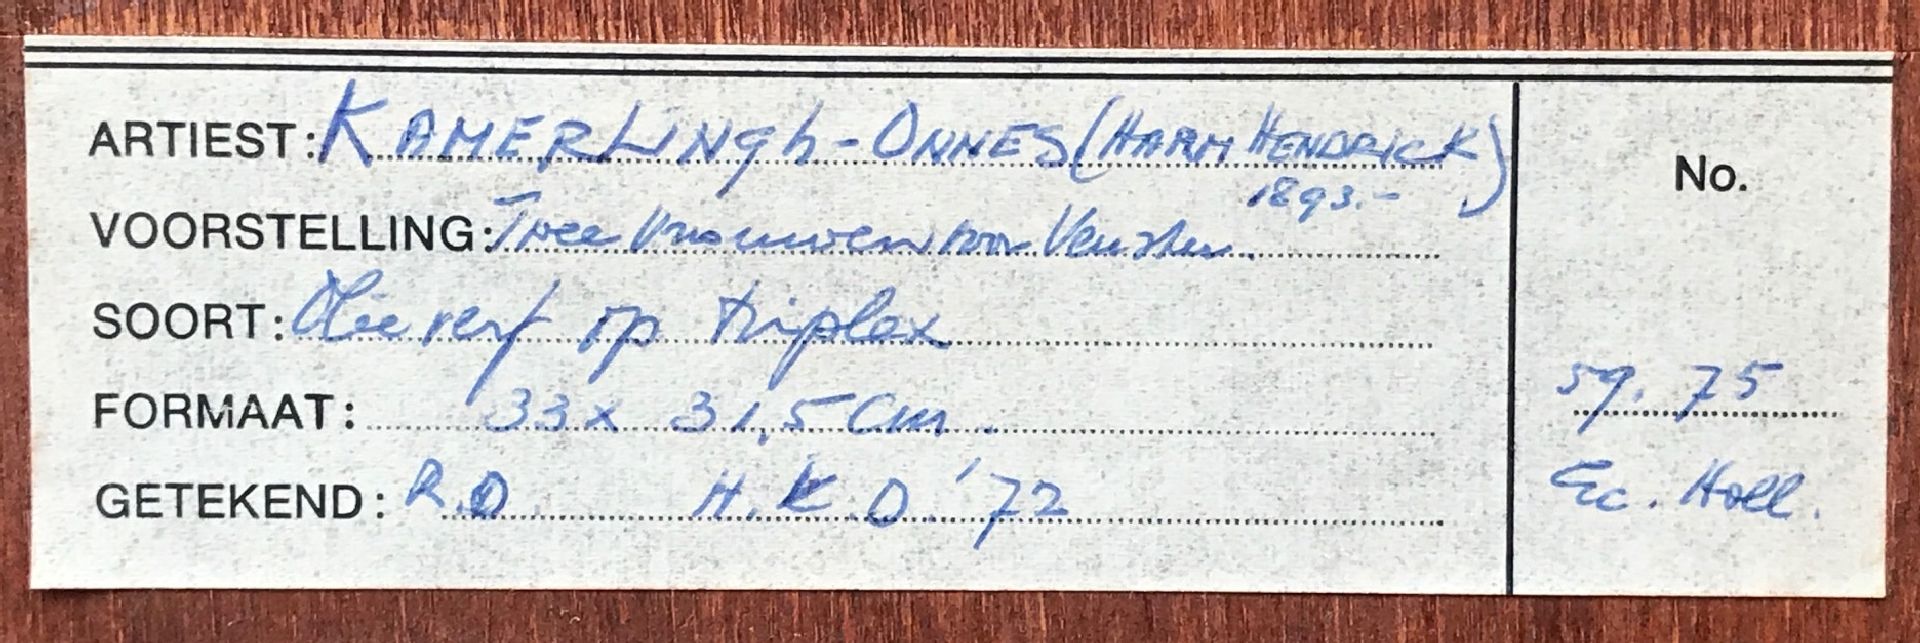 ARTIEST: KAMERLINGh-ONNES (HARM HENDRICK)
1893.-
No.
VOORSTELLING: Twee Vrouwen voor Venster.
SOORT: Olieverf op triplex
FORMAAT: 33 x 31,5 Cm.
59. 75
GETEKEND: R.O. H.K.O. '72
Ec. Holl.